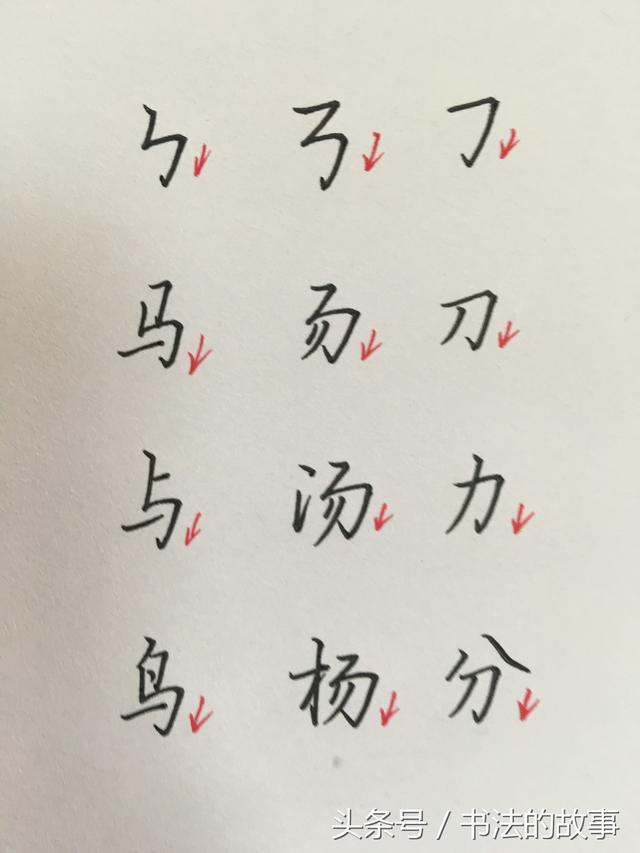 ㇉ ㇡ ㇆
马 𠃓 刀
与 汤 力
鸟 杨 分
头条号 / 书法的故事